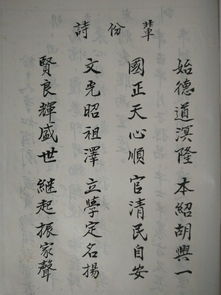 輩份詩
始德道隆 本紹胡興一
國正天心順 官清民自安
文光昭祖澤 立學定名揚
賢良輝盛世 繼起振家聲